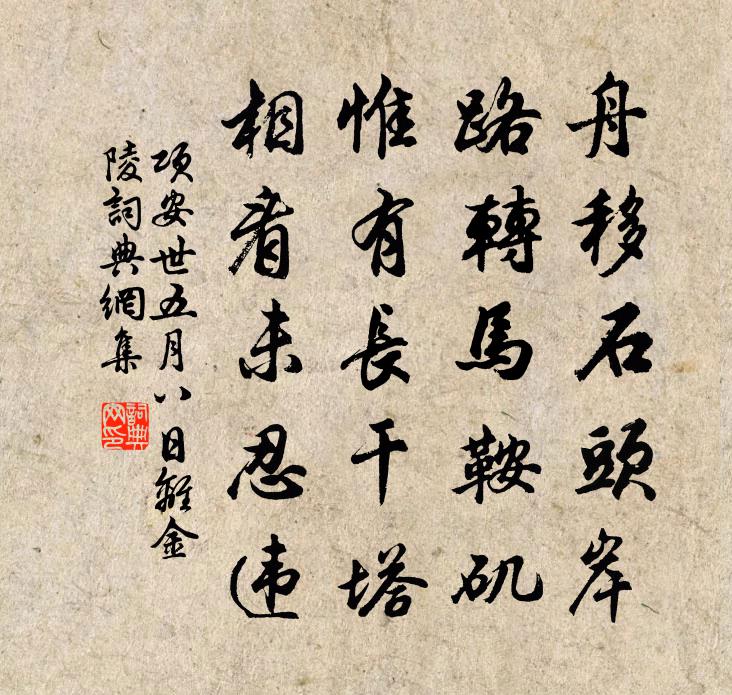 舟移石頭岸
路轉馬鞍矶
惟有長干塔
相看未忍违
項安世五月八日離金
陵詞典網集
詞典网印